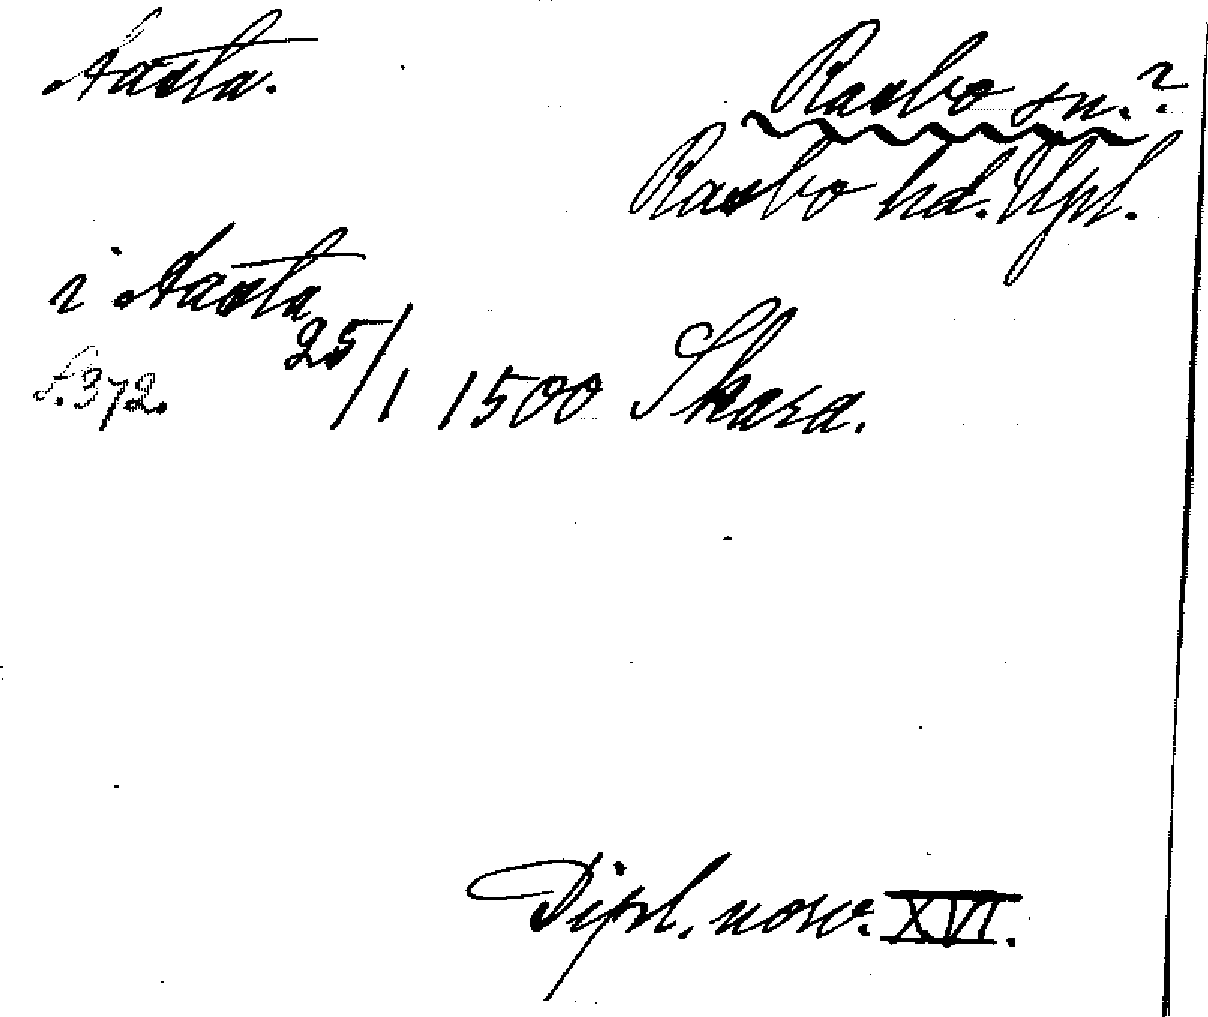 Aasta.
Rasbo sn.?
Rasbo hd. Upl.
i Aasta
25/1 1500 Skara.
s. 372.
Dipl. norv. XVI.